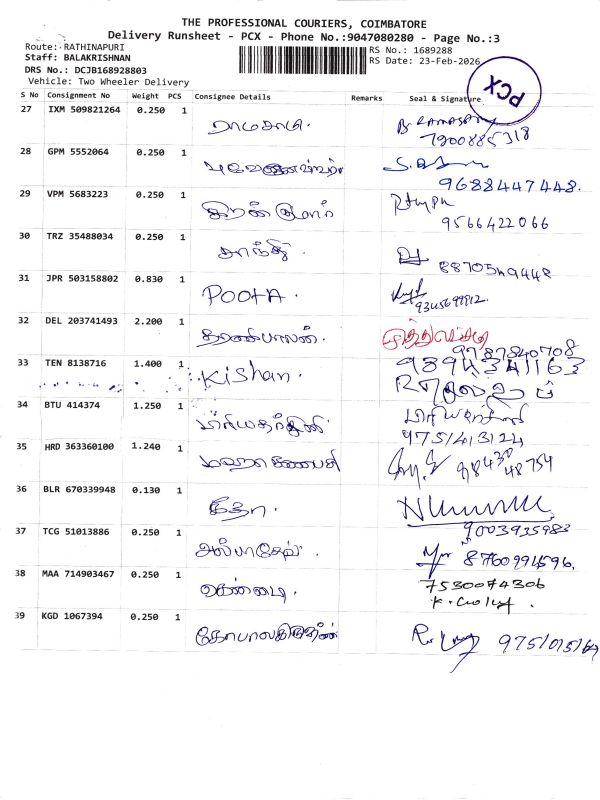 THE PROFESSIONAL COURIERS, COIMBATORE
Delivery Runsheet - PCX - Phone No.:9047080280 - Page No.:3
Route: RATHINAPURI
RS No.: 1689288
Staff: BALAKRISHNAN
RS Date: 23-Feb-2026
DRS No.: DCJB168928803
Vehicle: Two Wheeler Delivery
PCX
S No Consignment No Weight PCS Consignee Details Remarks Seal & Signature
27 IXM 509821264 0.250 1 ராமசாமி
7900885318
28 GPM 5552064 0.250 1
9688447448.
29 VPM 5683223 0.250 1
9566422066
30 TRZ 35488034 0.250 1 சாந்தி
31 JPR 503158802 0.830 1 POOJA
9345699912
32 DEL 203741493 2.200 1 தரணிபாலன்.
9787840708
33 TEN 8138716 1.400 1 Kishan.
9894341163
34 BTU 414374 1.250 1 பிரியதர்ஷினி
9751413124
35 HRD 363360100 1.240 1 மஹாகணபதி
9843048754
36 BLR 670339948 0.130 1 கீதா.
9003935983
37 TCG 51013886 0.250 1
8760991596.
38 MAA 714903467 0.250 1
7530074306
39 KGD 1067394 0.250 1 கோபாலகிருஷ்ணன்